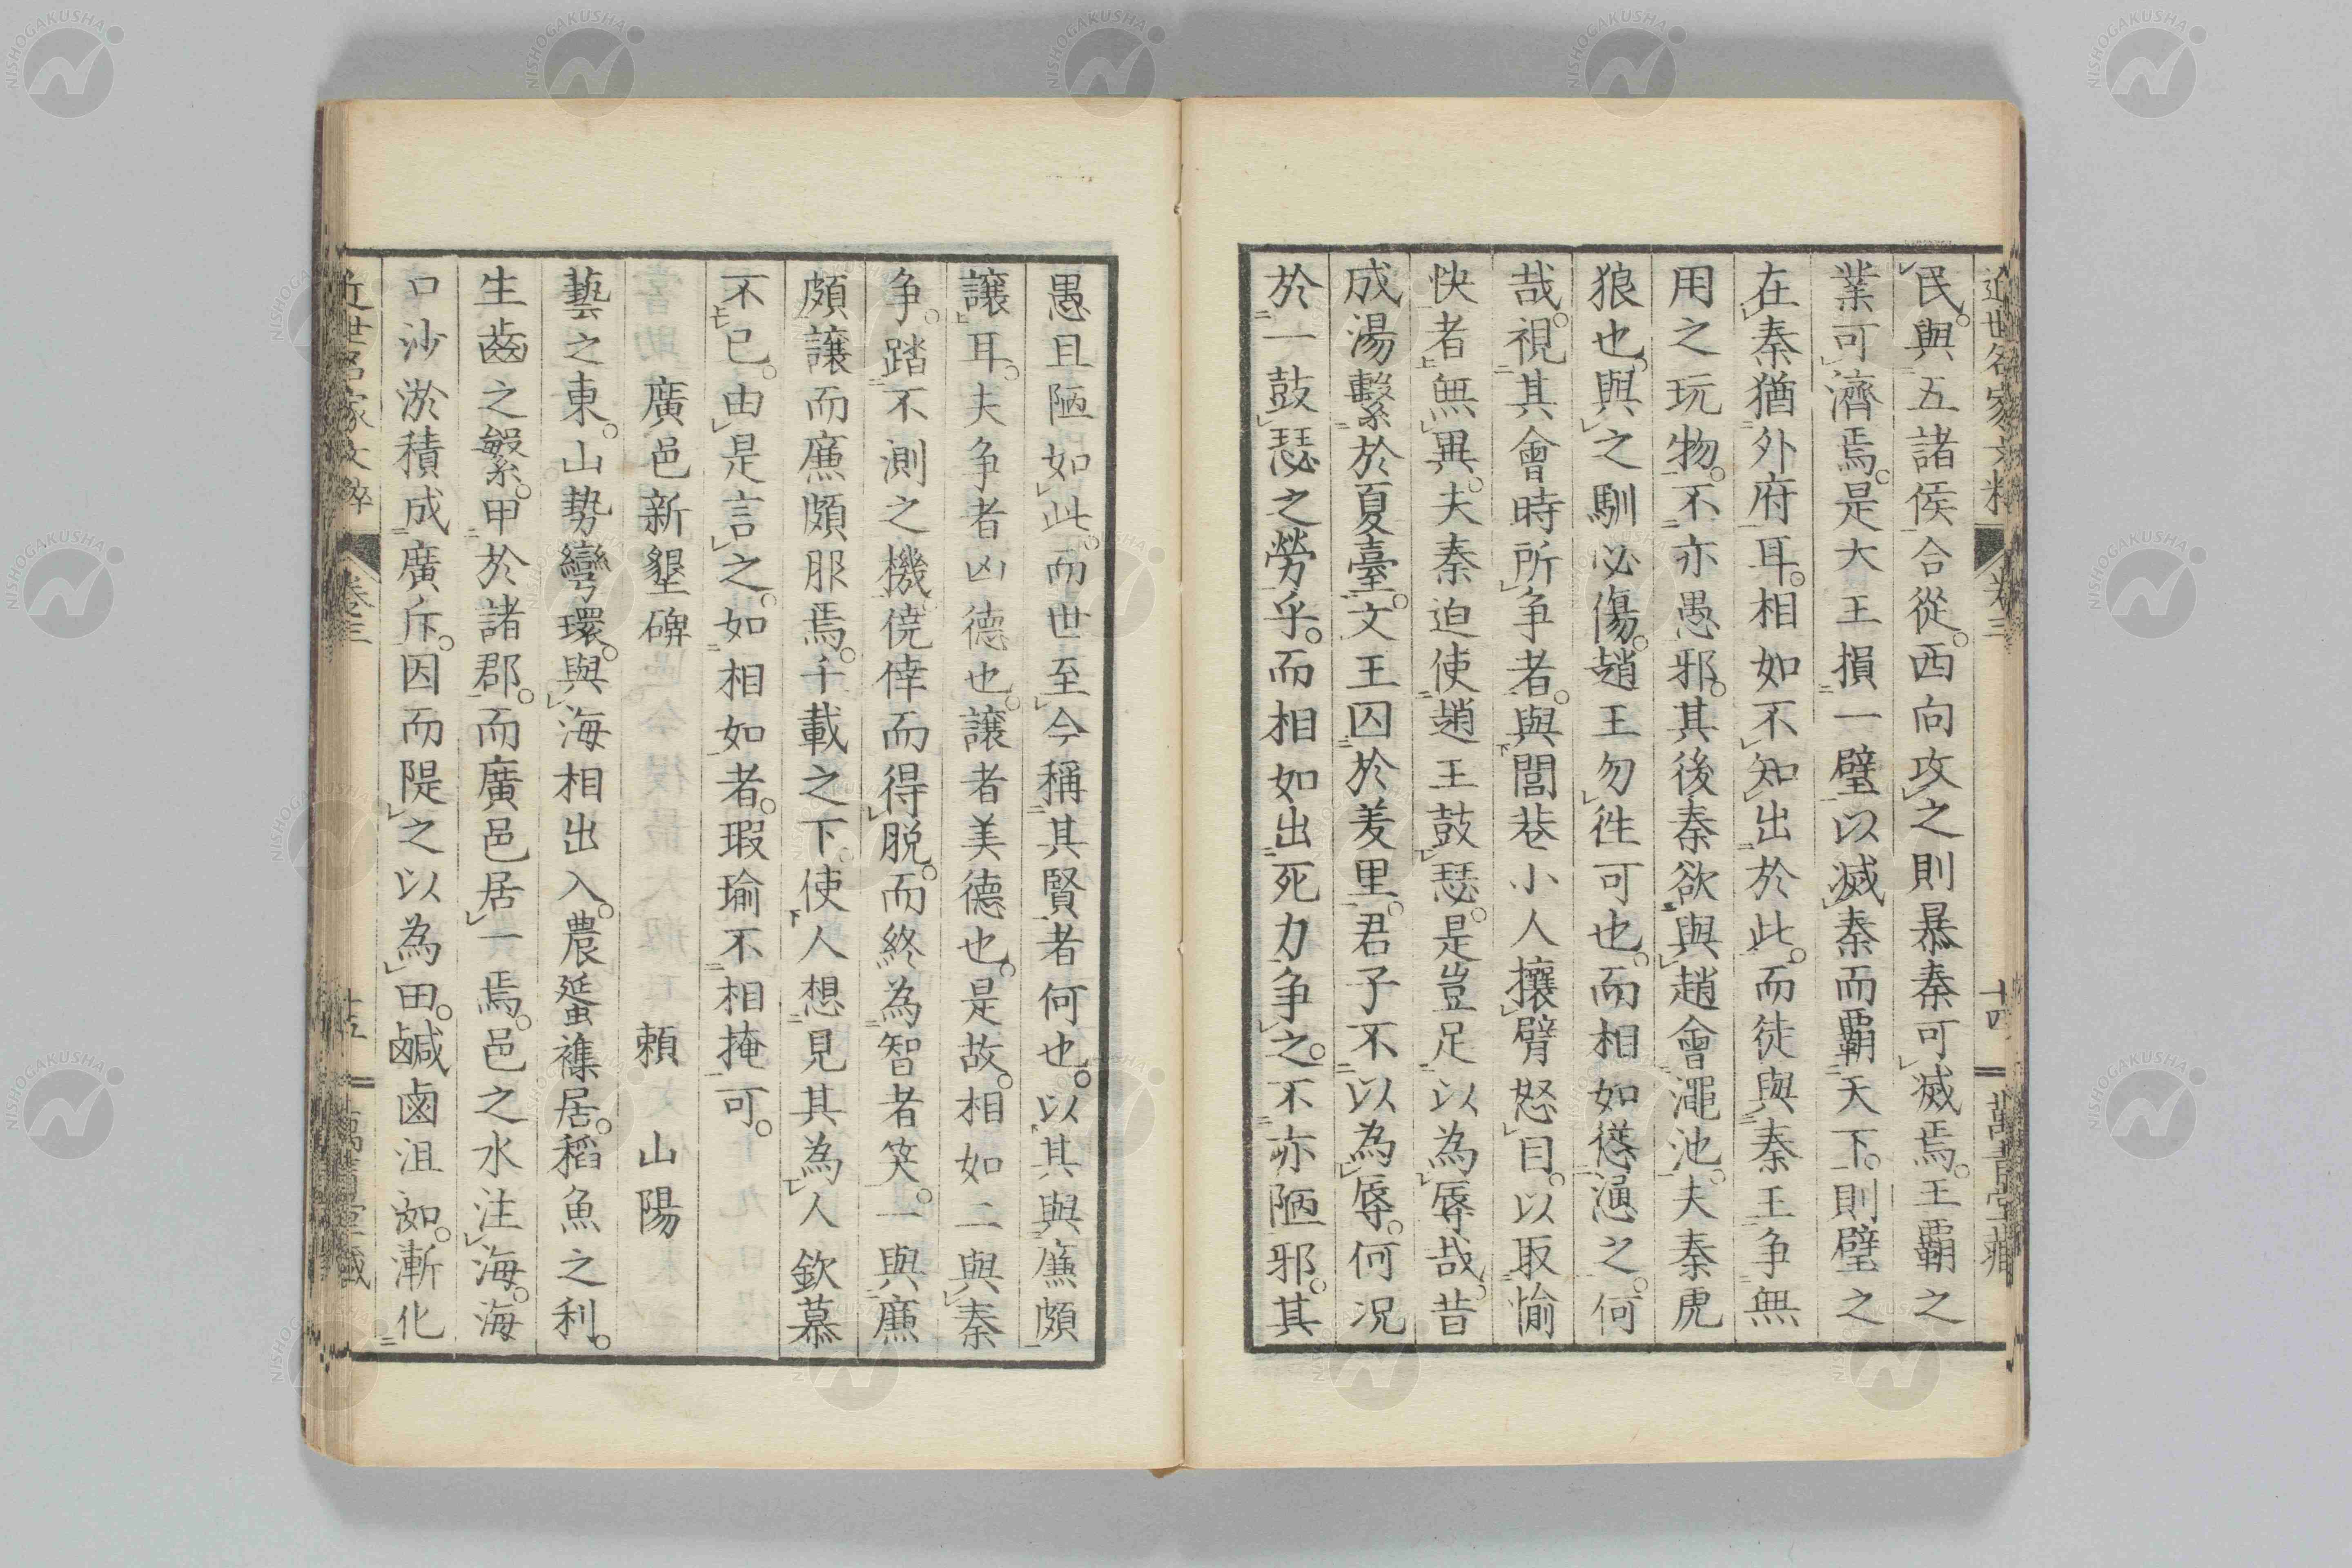 近世名家文粹 卷三 十四 萬青堂藏
民。與五諸侯合從。西向攻之則暴秦可滅焉。王霸之
業可濟焉。是大王損一璧以滅秦而霸天下。則璧之
在秦猶外府耳。相如不知出於此。而徒與秦王争無
用之玩物。不亦愚邪。其後秦欲與趙會澠池。夫秦虎
狼也。與之馴必傷。趙王勿徃可也。而相如慫慂之。何
哉。視其會時所争者。與閭巷小人攘臂怒目。以取愉
快者無異。夫秦迫使趙王鼓瑟。是豈足以為辱哉。昔
成湯繫於夏臺。文王囚於羑里。君子不以為辱。何况
於一鼓瑟之勞乎。而相如出死力争之。不亦陋邪。其
愚且陋如此。而世至今稱其賢者何也。以其與廉頗
讓耳。夫争者凶德也。讓者美德也。是故。相如二與秦
争。踏不測之機僥倖而得脱。而終為智者笑。一與廉
頗讓而廉頗服焉。千載之下使人想見其為人欽慕
不已。由是言之。如相如者。瑕瑜不相掩可。
廣邑新墾碑 頼山陽
藝之東。山勢彎環。與海相出入。農蜑襍居。稻魚之利。
生齒之繁。甲於諸郡。而廣邑居一焉。邑之水注海。海
口沙淤積成廣斥。因而隄之以為田。鹹鹵沮洳。漸化
近世名家文粹 卷三 十五 萬青堂藏
NISHOGAKUSHA